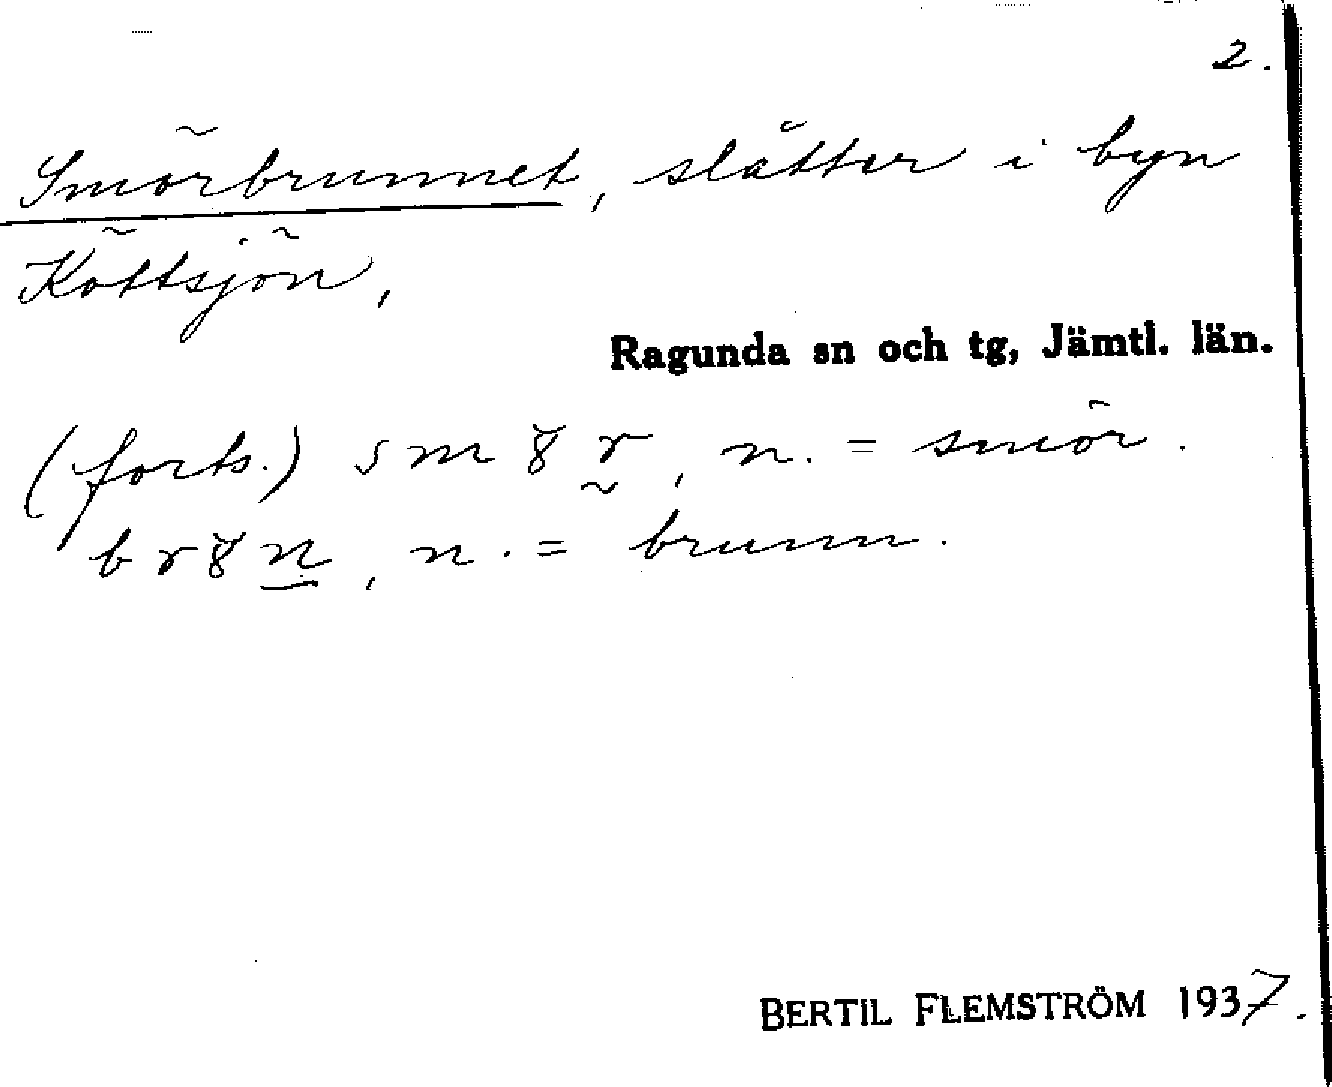 2.
Smörbrunnet, slätter i byn
Köttsjön,
Ragunda sn och tg, Jämtl. län.
(forts.) , n. = smör.
, n. = brunn.
BERTIL FLEMSTRÖM 1937.